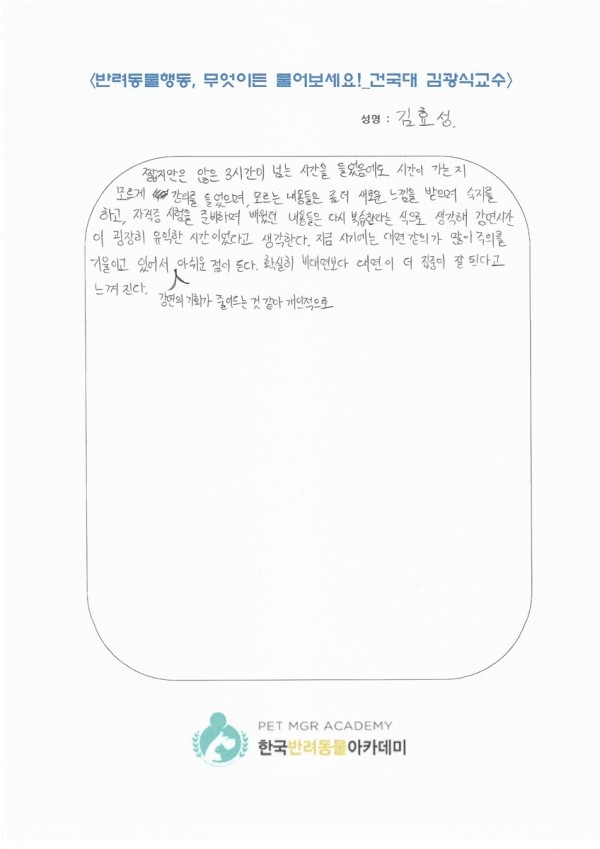 <반려동물행동, 무엇이든 물어보세요!_건국대 김광식교수>
성명 : 김효성.
짧지만은 않은 3시간이 넘는 시간을 들었음에도 시간이 가는지
모르게 강의를 들었으며, 모르는 내용들은 좀 더 새로운 느낌을 받으며 숙지를
하고, 자격증 시험을 준비하며 배웠던 내용들은 다시 복습한다는 식으로 생각해 강연시간
이 굉장히 유익한 시간이었다고 생각한다. 지금 시기에는 대면 강의가 많이 주의를
기울이고 있어서 아쉬운 점이 든다. 확실히 비대면보다 대면이 더 집중이 잘 된다고
느껴진다.
강연의 기회가 줄어드는 것 같아 개인적으로
PET MGR ACADEMY
한국반려동물아카데미